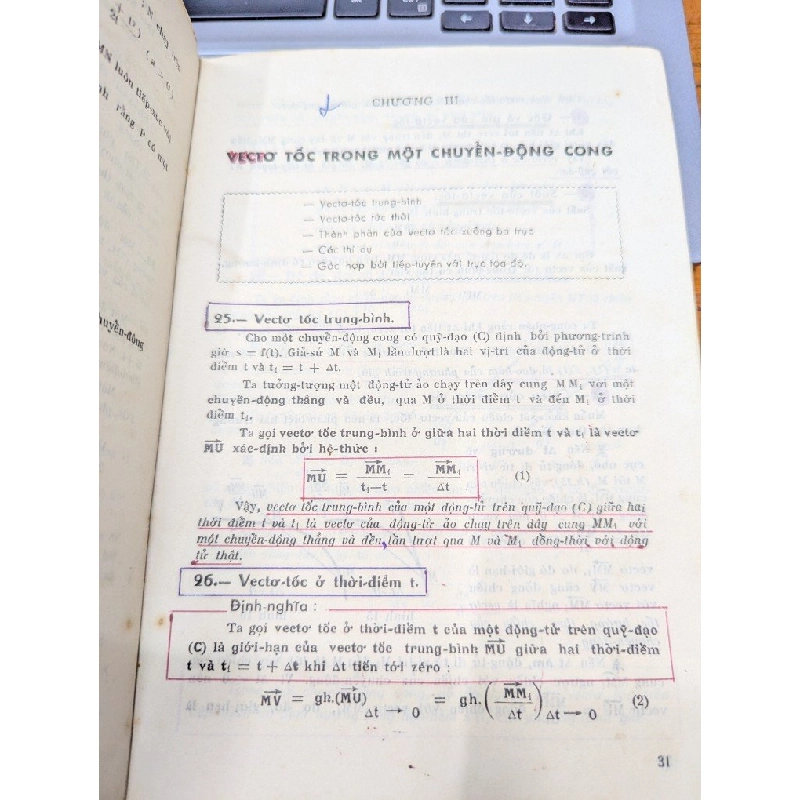 CHƯƠNG III
VECTƠ TỐC TRONG MỘT CHUYỂN-ĐỘNG CONG
— Vectơ-tốc trung-bình
— Vectơ-tốc tức thời
— Thành phần của vectơ tốc xuống ba trục
— Các thí dụ
Góc hợp bởi tiếp-tuyến với trục tọa độ.
25.— Vectơ tốc trung-bình.
Cho một chuyển-động cong có quỹ-đạo (C) định bởi phương-trình
giờ s = f(t). Giả-sử M và M₁ lần lượt là hai vị-trí của động-tử ở thời
điểm t và t₁ = t + Δt.
Ta tưởng-tượng một động-tử ảo chạy trên dây cung MM₁ với một
chuyển-động thẳng và đều, qua M ở thời điểm t và đến M₁ ở thời
điểm t₁.
Ta gọi vectơ tốc trung-bình ở giữa hai thời điểm t và t₁ là vectơ
MU xác-định bởi hệ-thức :
MU = MM₁ / t₁—t = MM₁ / Δt (1)
Vậy, vectơ tốc trung-bình của một động-tử trên quỹ-đạo (C) giữa hai
thời điểm t và t₁ là vectơ của động-tử ảo chạy trên dây cung MM₁ với
một chuyển-động thẳng và đều, lần lượt qua M và M₁ đồng-thời với động
tử thật.
26.— Vectơ-tốc ở thời-điểm t.
Định-nghĩa :
Ta gọi vectơ tốc ở thời-điểm t của một động-tử trên quỹ-đạo
(C) là giới-hạn của vectơ tốc trung-bình MU giữa hai thời-điểm
t và t₁ = t + Δt khi Δt tiến tới zéro :
MV = gh.(MU) Δt → 0 = gh.(MM₁ / Δt) Δt → 0 (2)
31